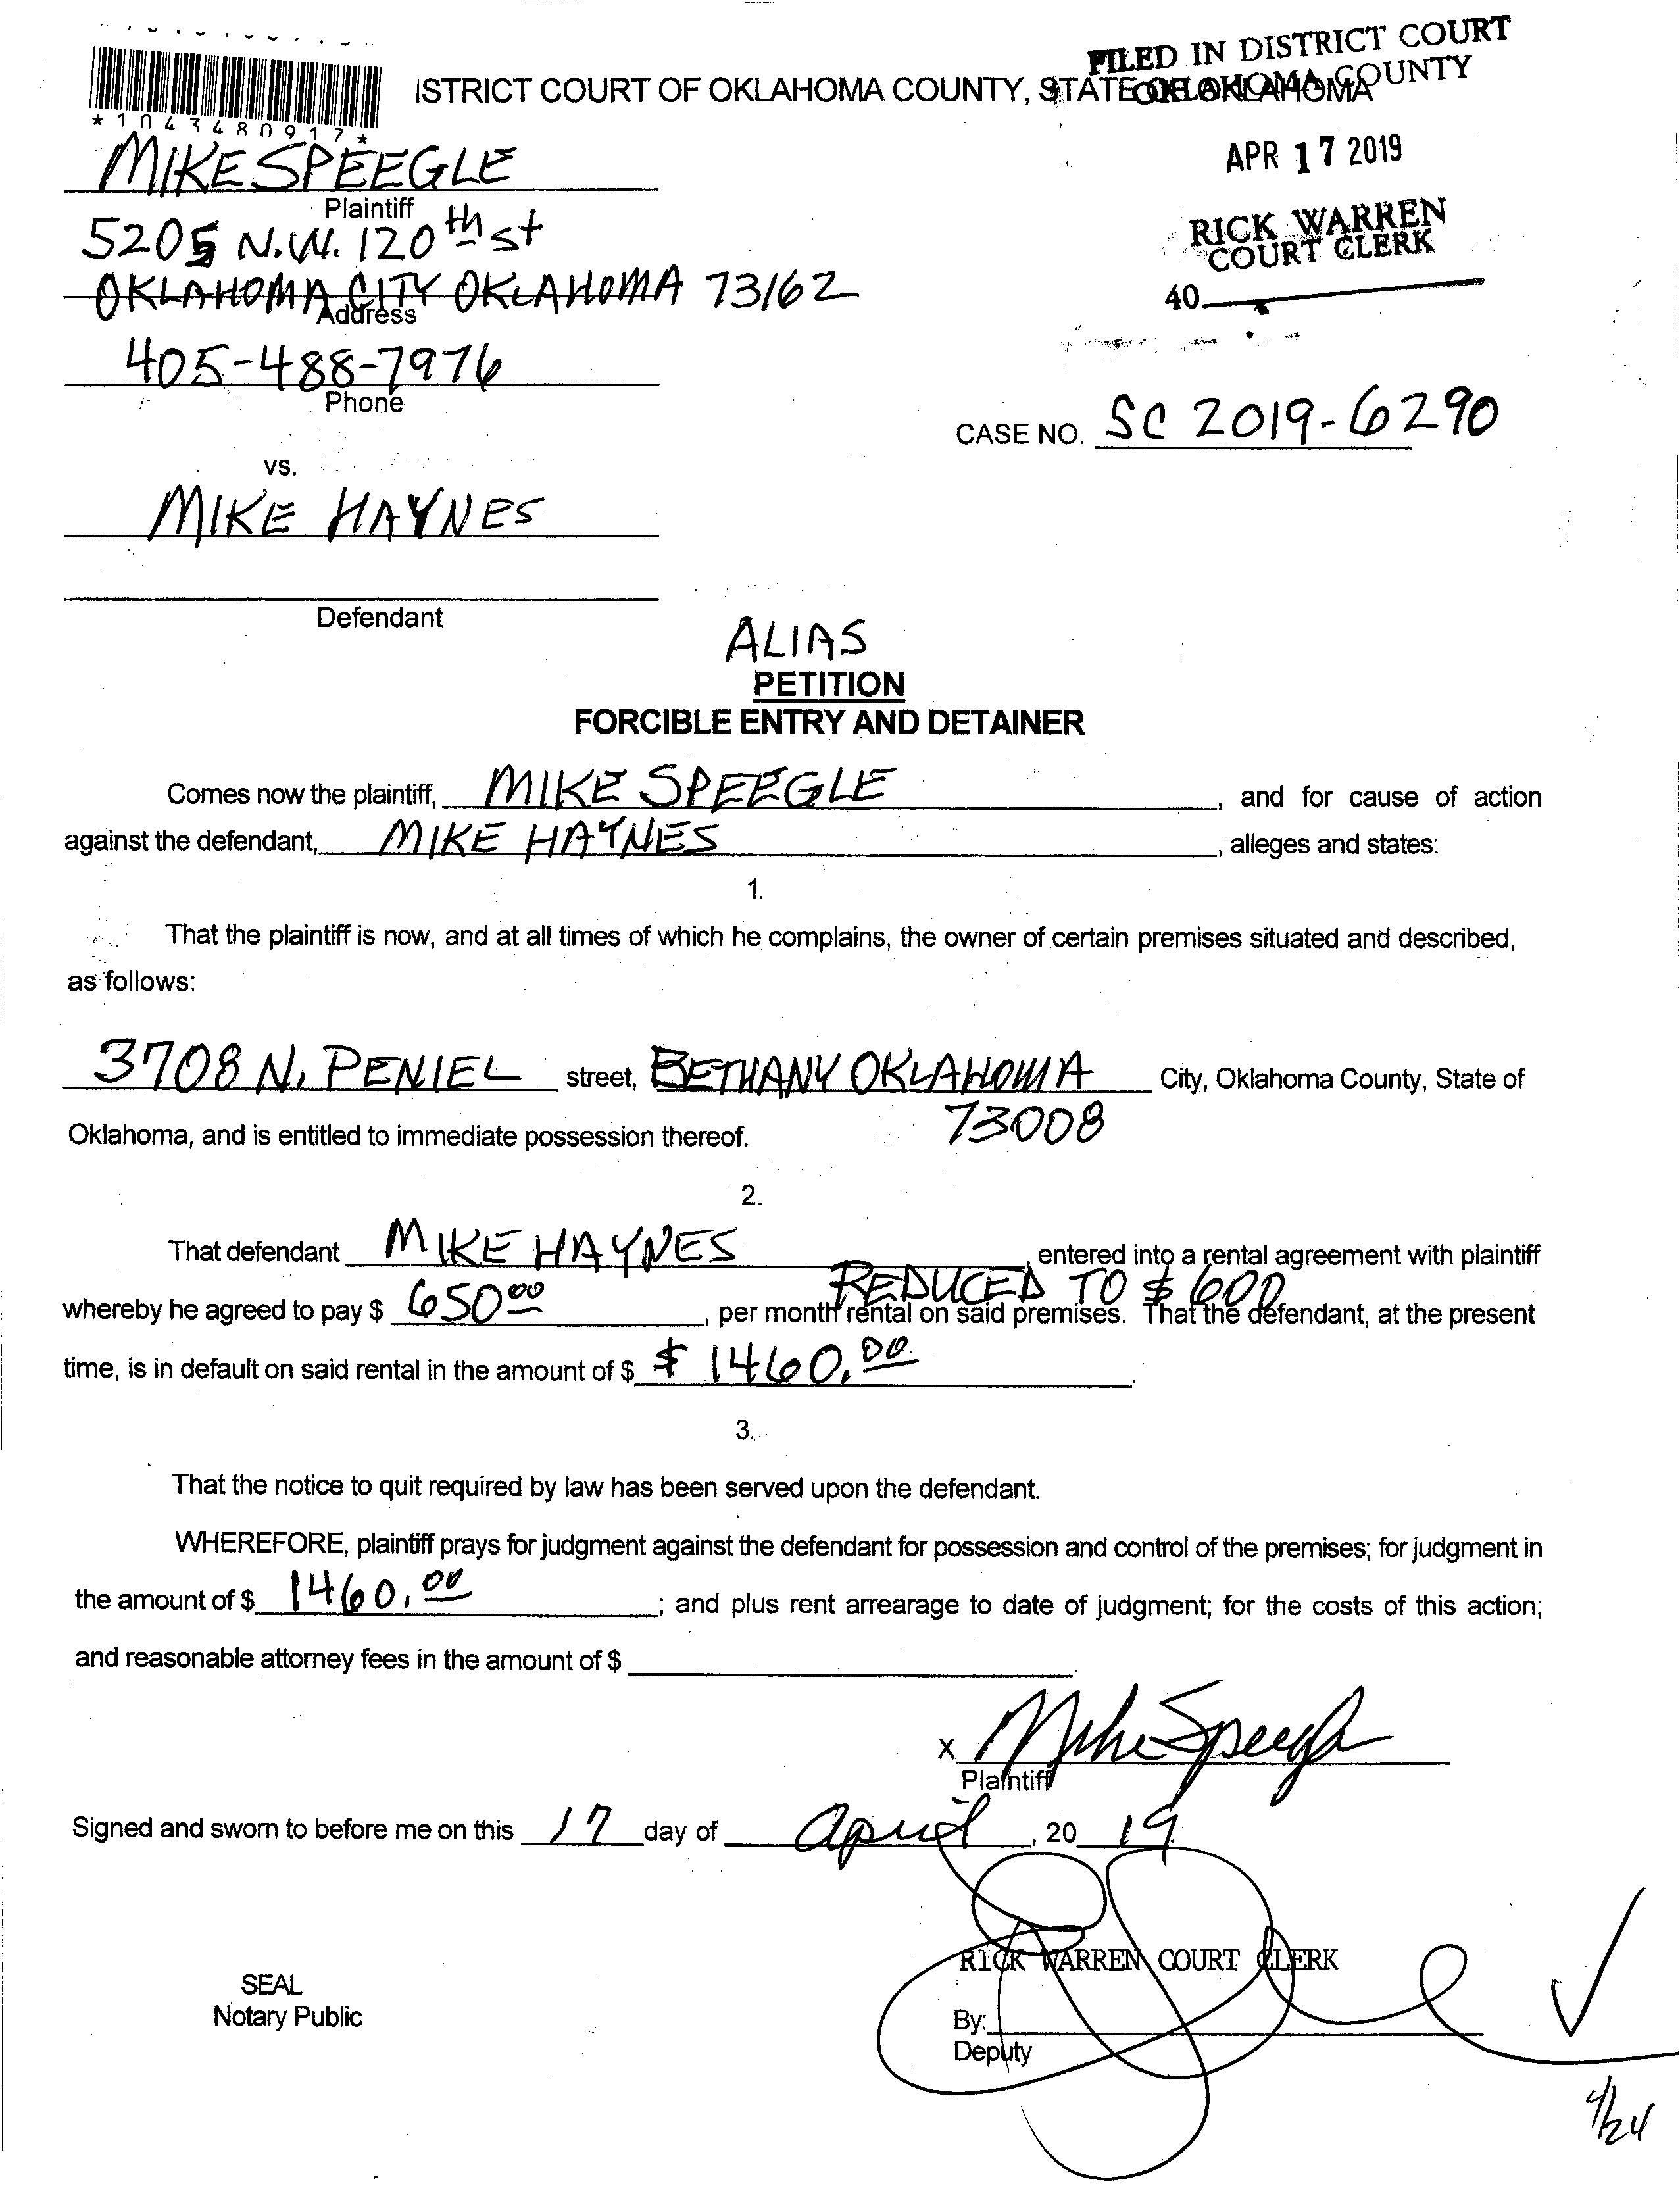 FILED IN DISTRICT COURT
OKLAHOMA COUNTY
ISTRICT COURT OF OKLAHOMA COUNTY, STATE OF OKLAHOMA
*1043480917*
APR 17 2019
MIKE SPEEGLE
Plaintiff
RICK WARREN
COURT CLERK
5205 N.W. 120th st
OKLAHOMA CITY OKLAHOMA 73162
Address
40
405-488-7976
Phone
CASE NO. SC 2019-6290
vs.
MIKE HAYNES
Defendant
ALIAS
PETITION
FORCIBLE ENTRY AND DETAINER
Comes now the plaintiff, MIKE SPEEGLE, and for cause of action
against the defendant, MIKE HAYNES, alleges and states:
1.
That the plaintiff is now, and at all times of which he complains, the owner of certain premises situated and described,
as follows:
3708 N. PENIEL street, BETHANY OKLAHOMA City, Oklahoma County, State of
73008
Oklahoma, and is entitled to immediate possession thereof.
2.
That defendant MIKE HAYNES, entered into a rental agreement with plaintiff
REDUCED TO $600
whereby he agreed to pay $ 650.00, per month rental on said premises. That the defendant, at the present
time, is in default on said rental in the amount of $ $ 1460.00.
3.
That the notice to quit required by law has been served upon the defendant.
WHEREFORE, plaintiff prays for judgment against the defendant for possession and control of the premises; for judgment in
the amount of $ 1460.00; and plus rent arrearage to date of judgment; for the costs of this action;
and reasonable attorney fees in the amount of $
x Mike Speegle
Plaintiff
Signed and sworn to before me on this 17 day of April, 20 19
RICK WARREN COURT CLERK
SEAL
Notary Public
By:
Deputy
4/24